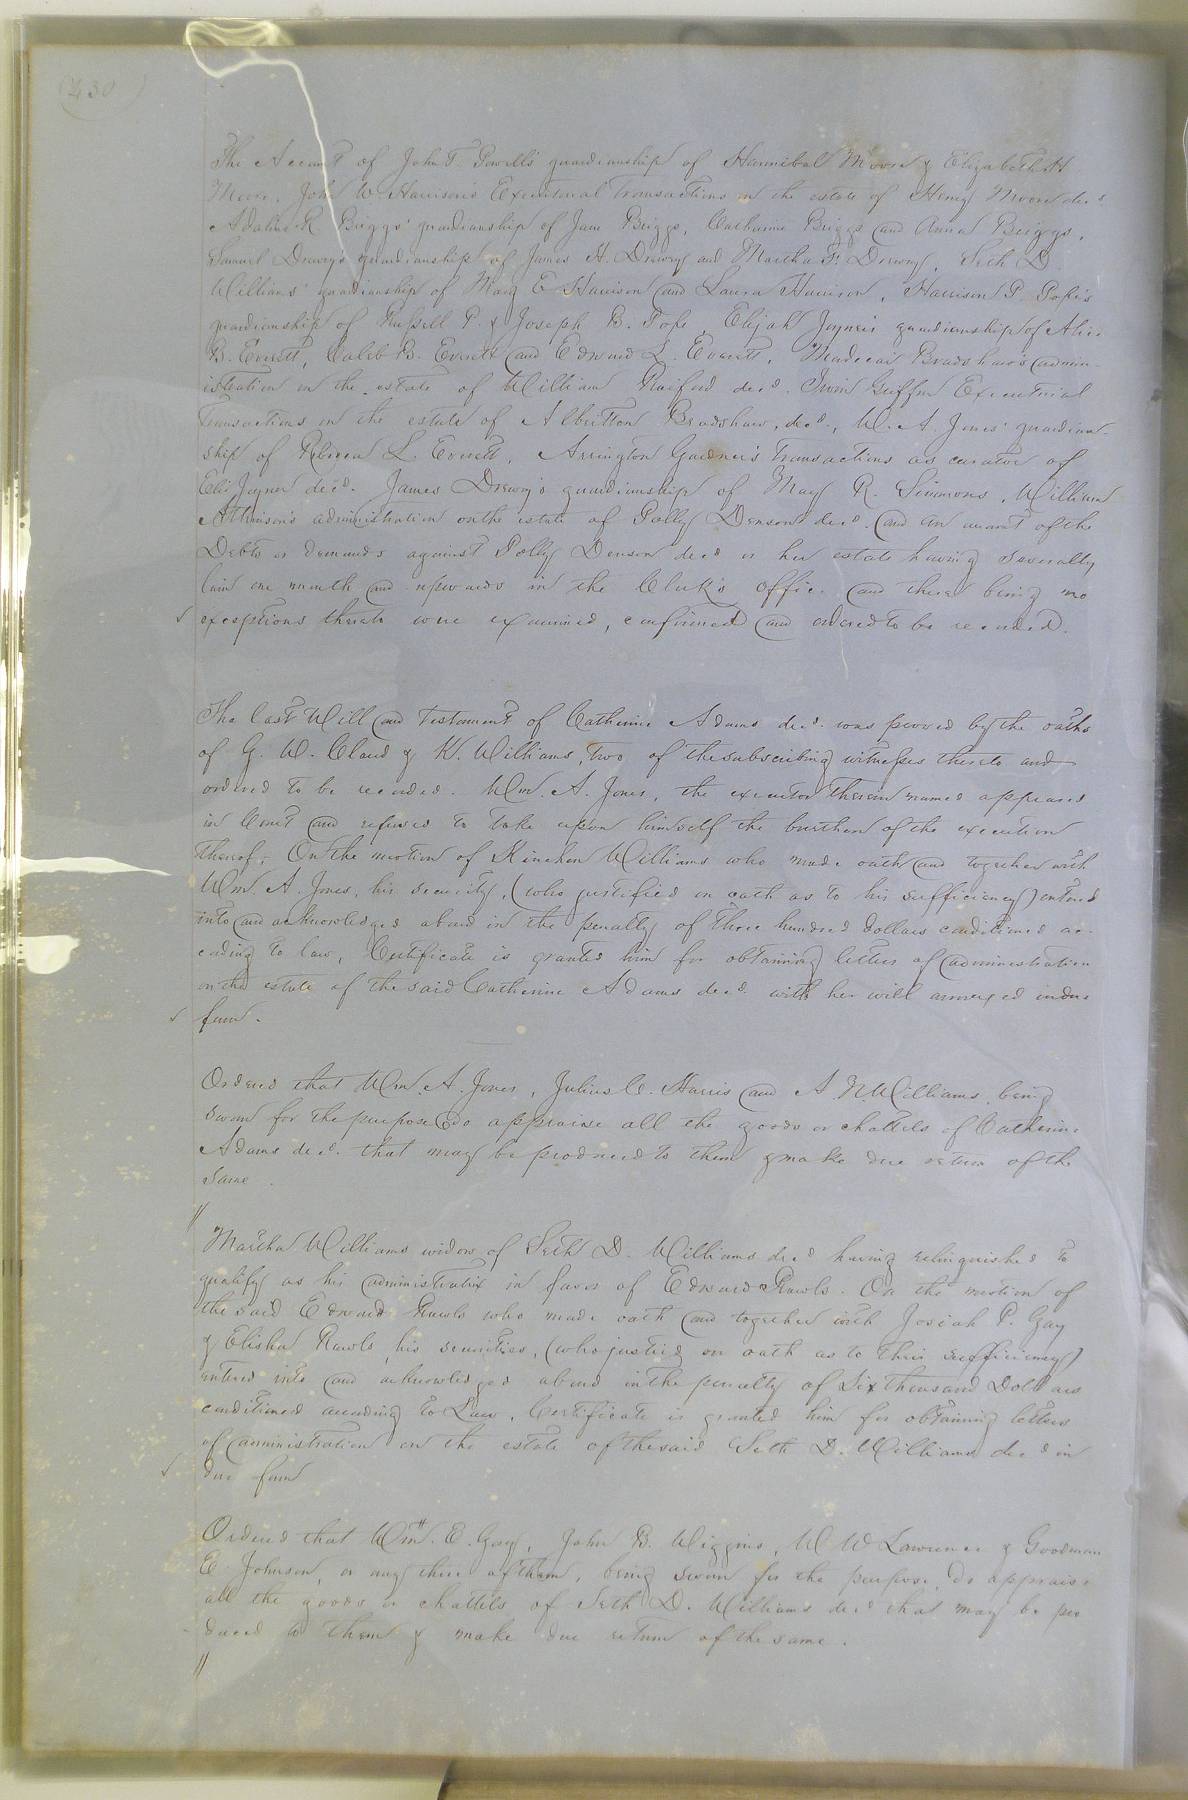 (430)
The Account of John T. Powell's guardianship of Hannibal Moore & Elizabeth H
Moore, John W. Harrison's Executorial Transactions on the estate of Henry Moore decd
Adaline R. Briggs' guardianship of Jane Briggs, Catharine Briggs and Anna Briggs,
Samuel Drewry's guardianship of James H. Drewry and Martha F. Drewry, Seth D.
Williams' guardianship of Mary E Harrison and Laura Harrison, Harrison P. Pope's
guardianship of Russell P. & Joseph B. Pope, Elijah Joyner's guardianship of Alice
B. Everett, Caleb B. Everett and Edward L. Everett, Bradshaw's admin-
istration on the estate of William Raiford decd. Irvin Griffin Executorial
Transactions on the estate of Albritton Bradshaw, decd., W. A. Jones' guardian-
ship of Rebecca L. Everett, Arrington Gardner's Transactions as curator of
Eli Joyner decd. James Drewry's guardianship of Mary R. Simmons, William
Atkinson's administration on the estate of Polly Denson decd. and an account of the
Debts or demands against Polly Denson decd or her estate having severally
lain one month and upwards in the Clerk's office and there being no
exceptions thereto were examined, confirmed and ordered to be recorded.
The last Will and Testament of Catherine Adams decd. was proved by the oaths
of G. W. Claud & K. Williams, two of the subscribing witnesses thereto and
ordered to be recorded. Wm. A. Jones, the executor therein named appeared
in Court and refused to take upon himself the burthen of the execution
thereof, On the motion of Kinchen Williams who made oath and together with
Wm. A. Jones, his security, (who justified on oath as to his sufficiency) entered
into and acknowledged a bond in the penalty of Three hundred dollars conditioned ac-
cording to law, Certificate is granted him for obtaining letters of administration
on the estate of the said Catherine Adams decd. with her will annexed in due
form.
Ordered that Wm. A. Jones, Julius C. Harris and A. N. Williams, being
sworn for the purpose do appraise all the goods or chattels of Catherine
Adams decd. that may be produced to them & make due return of the
same.
Martha Williams widow of Seth D. Williams decd having relinquished to
qualify as his administratrix in favor of Edward Rawls. On the motion of
the said Edward Rawls who made oath and together with Josiah P. Gay
& Elisha Rawls, his securities, (who justied on oath as to their sufficiency)
entered into and acknowledged a bond in the penalty of Six thousand Dollars
conditioned according to Law, Certificate is granted him for obtaining letters
of administration on the estate of the said Seth D. Williams decd in
due form
Ordered that Wm. E. Gay, John B. Wiggins, W. W Lawrence & Goodman
E. Johnson, or any three of them, being sworn for the purpose, do appraise
all the goods or chattels of Seth D. Williams decd that may be pro
duced to them & make due return of the same.